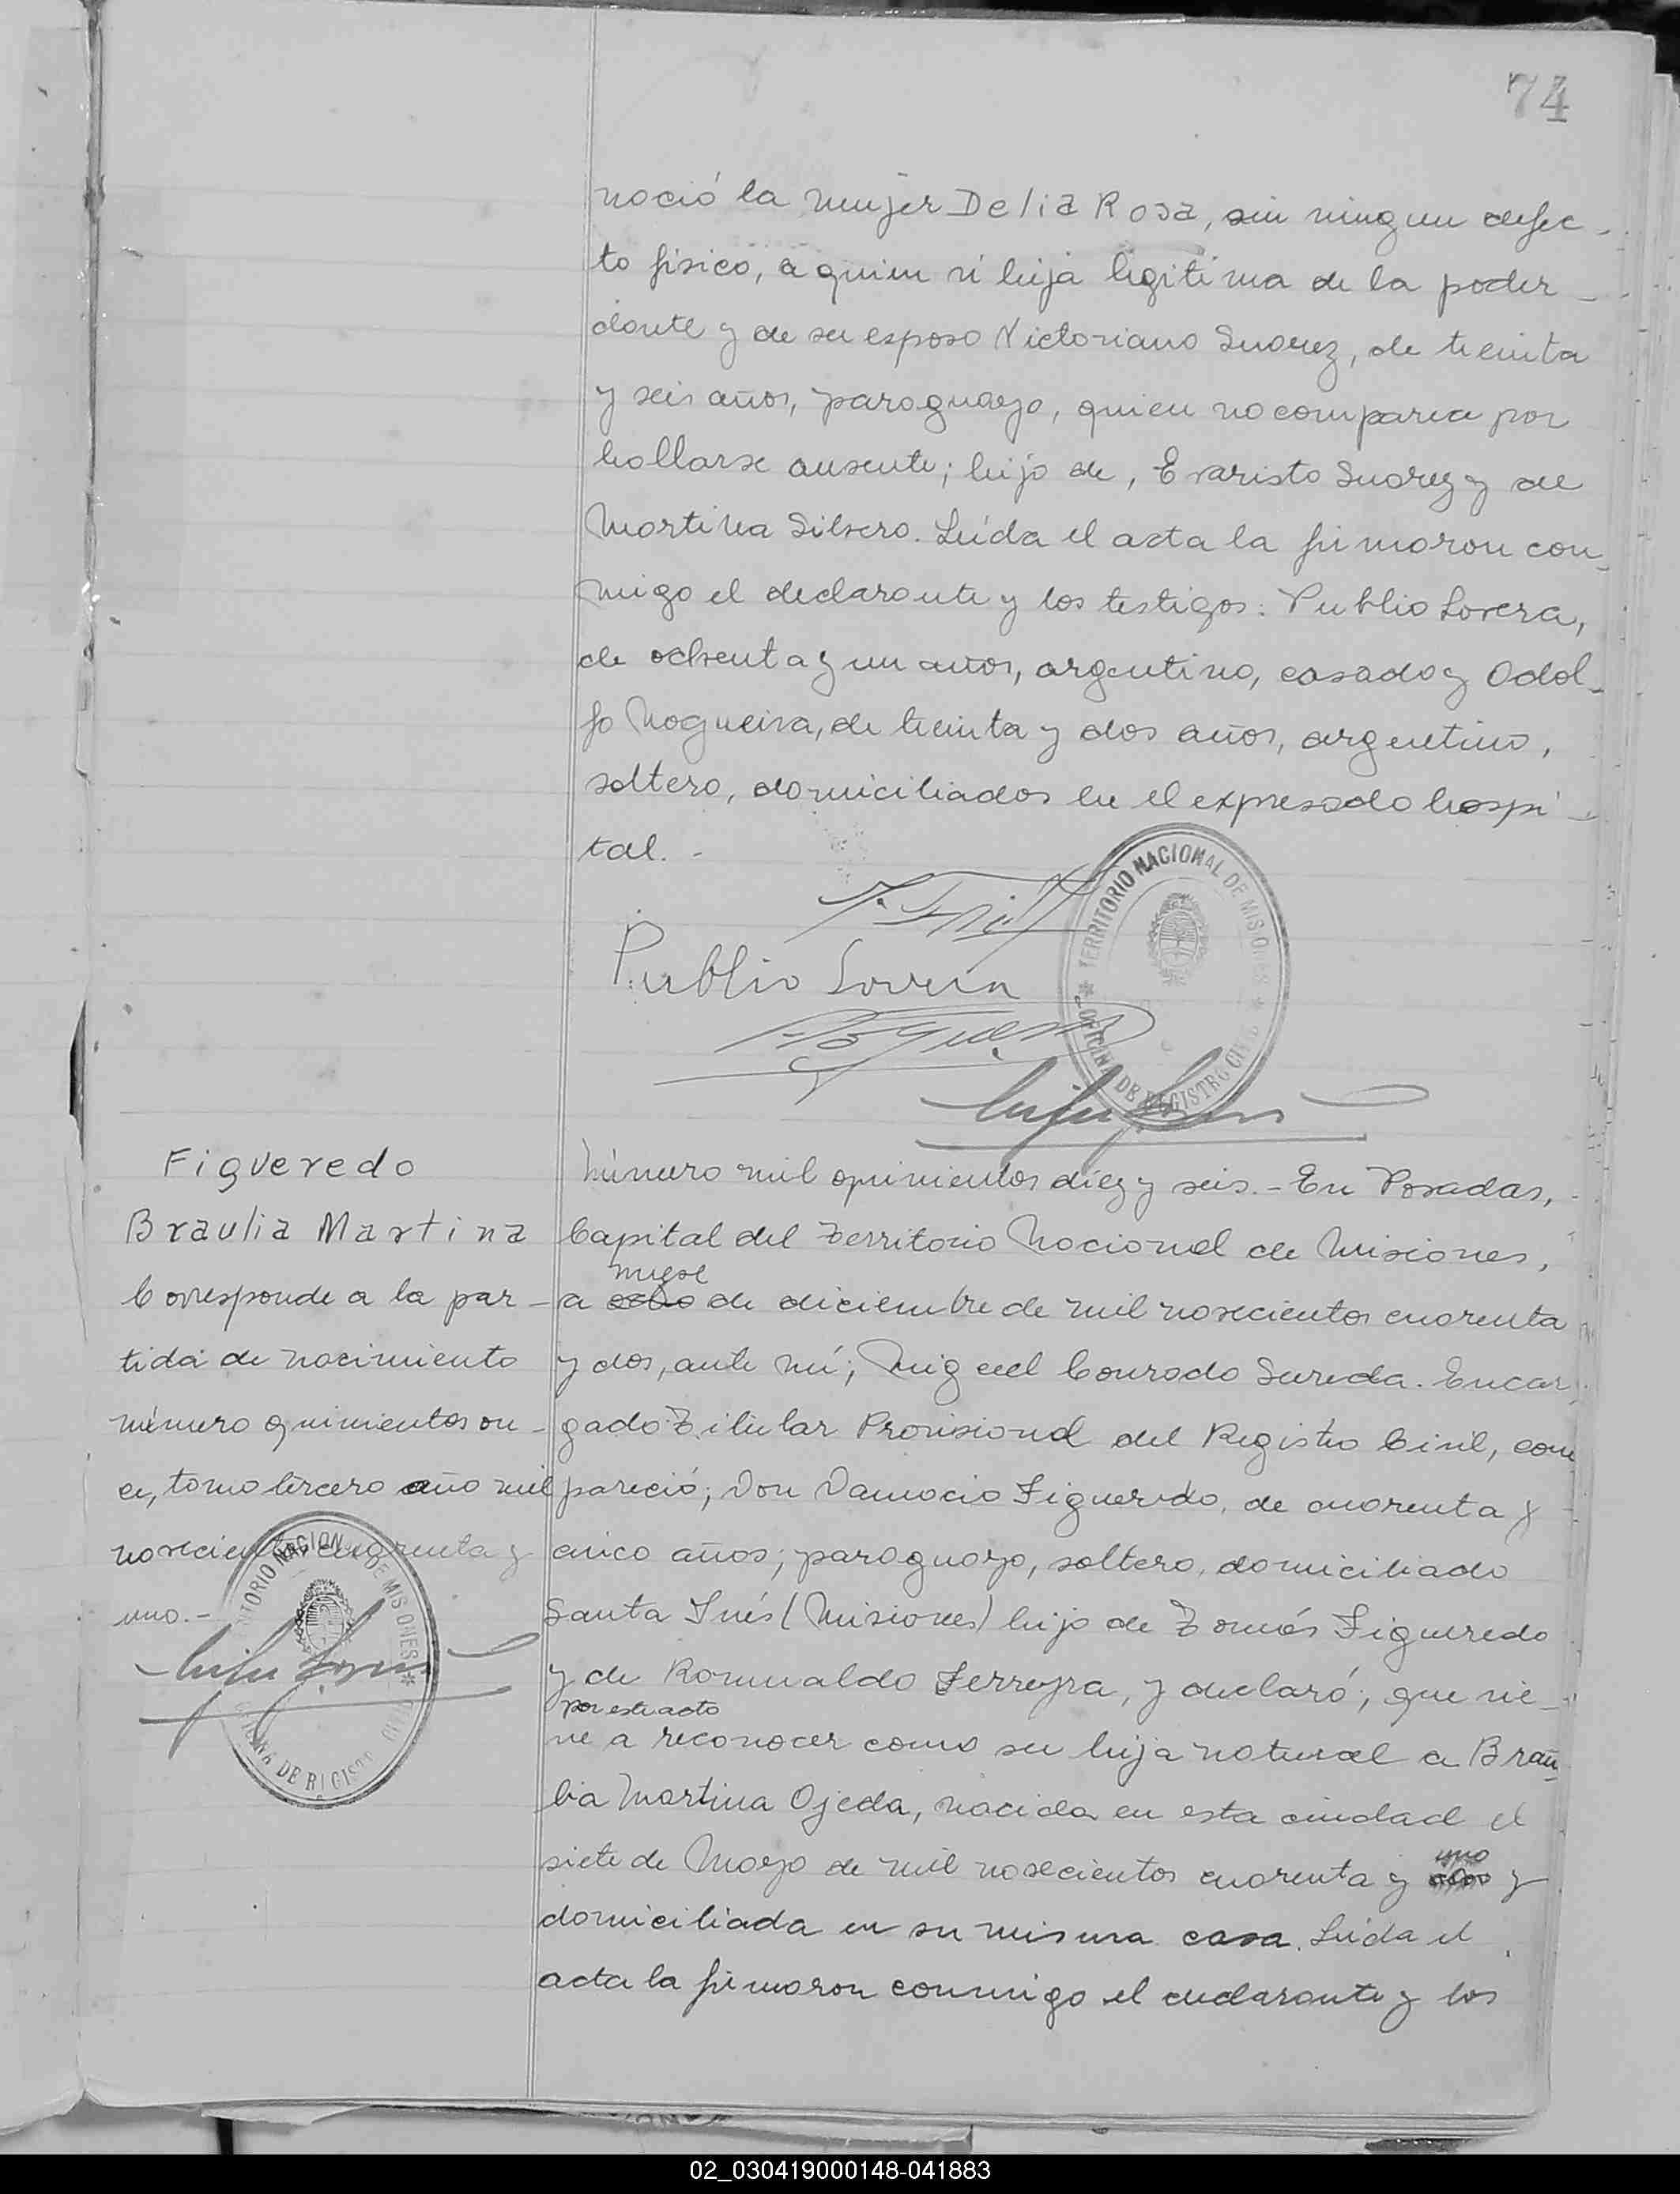 74
noció la mujer Delia Rosa, sin ningun defec-
to fisico, a quien vi hija legitima de la poder-
dante y de su esposo Victoriano Suarez, de treinta
y seis años, paraguayo, quien no comparece por
hallarse ausente; hijo de, Evaristo Suarez y de
Martina Silvero. Leída el acta la firmaron con-
migo el declarante y los testigos: Publio Lovera,
de ochenta y un años, argentino, casado y Odol-
fo Nogueira, de treinta y dos años, argentino,
soltero, domiciliados en el expresado hospi-
tal. -
Publio Lovera
TERRITORIO NACIONAL DE MISIONES
OFICINA DE REGISTRO CIVIL
Figueredo
Braulia Martina
Corresponde a la par-
tida de nacimiento
número quinientos on-
ce, tomo tercero año mil
novecientos cuarenta y
uno. -
TERRITORIO NACIONAL DE MISIONES
OFICINA DE REGISTRO CIVIL
Número mil quinientos diez y seis. - En Posadas,
Capital del Territorio Nacional de Misiones,
nueve
a ocho de diciembre de mil novecientos cuarenta
y dos, ante mí; Miguel Conrado Sureda. Encar-
gado Titular Provisional del Registro Civil, com
pareció; Don Damacio Figueredo, de cuarenta y
cinco años; paraguayo, soltero, domiciliado
Santa Inés (Misiones) hijo de Tomás Figueredo
y de Romualdo Ferreyra, y declaró; que vie-
por este acto
ne a reconocer como su hija natural a Brau-
lia Martina Ojeda, nacida en esta ciudad el
uno
siete de Mayo de mil novecientos cuarenta y dos y
domiciliada en su misma casa. Leída el
acta la firmaron conmigo el declarante y los
02_030419000148-041883